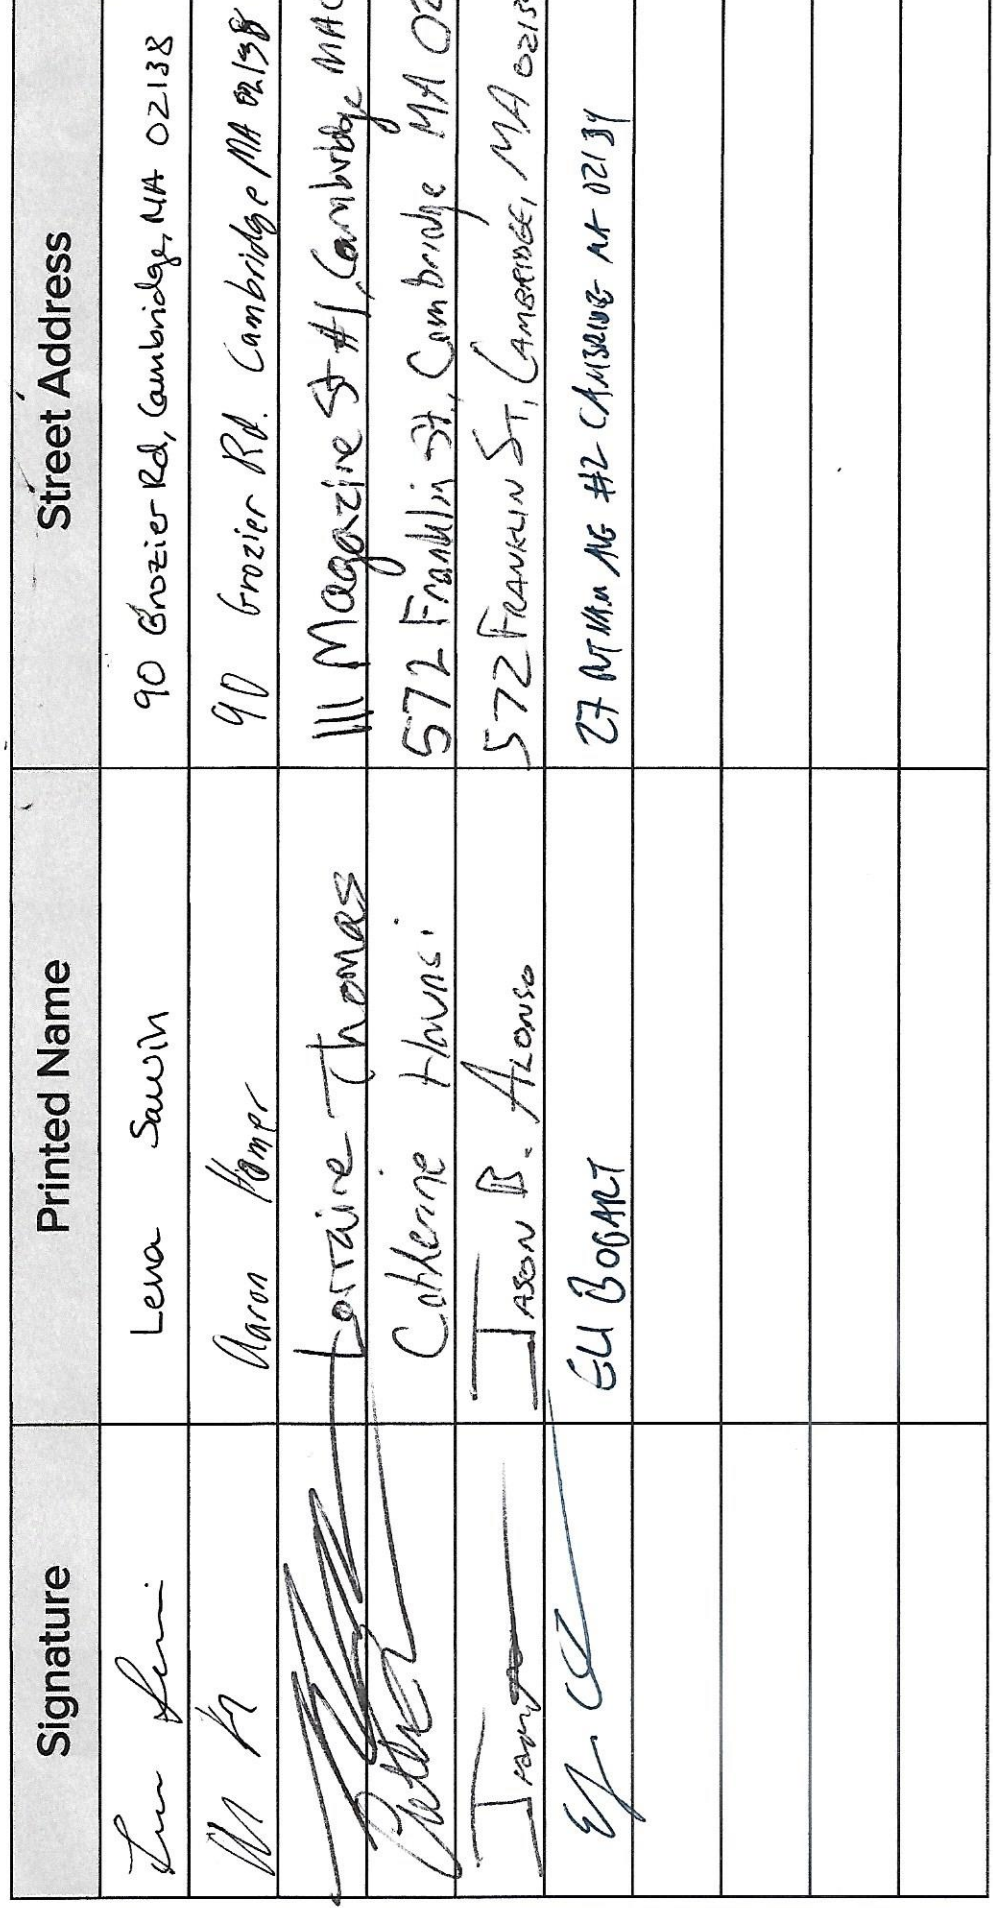 Signature Printed Name Street Address
Lena Sawin 90 Grozier Rd, Cambridge, MA 02138
Aaron 90 Grozier Rd. Cambridge MA 02138
Lorraine Thomas 111 Magazine St #1, Cambridge MA 0
Catherine 572 Franklin St., Cambridge MA 02
JASON B. ALONSO 572 FRANKLIN ST, CAMBRIDGE, MA 0213
ELI BOGART 27 #2 CAMBRIDGE MA 02139